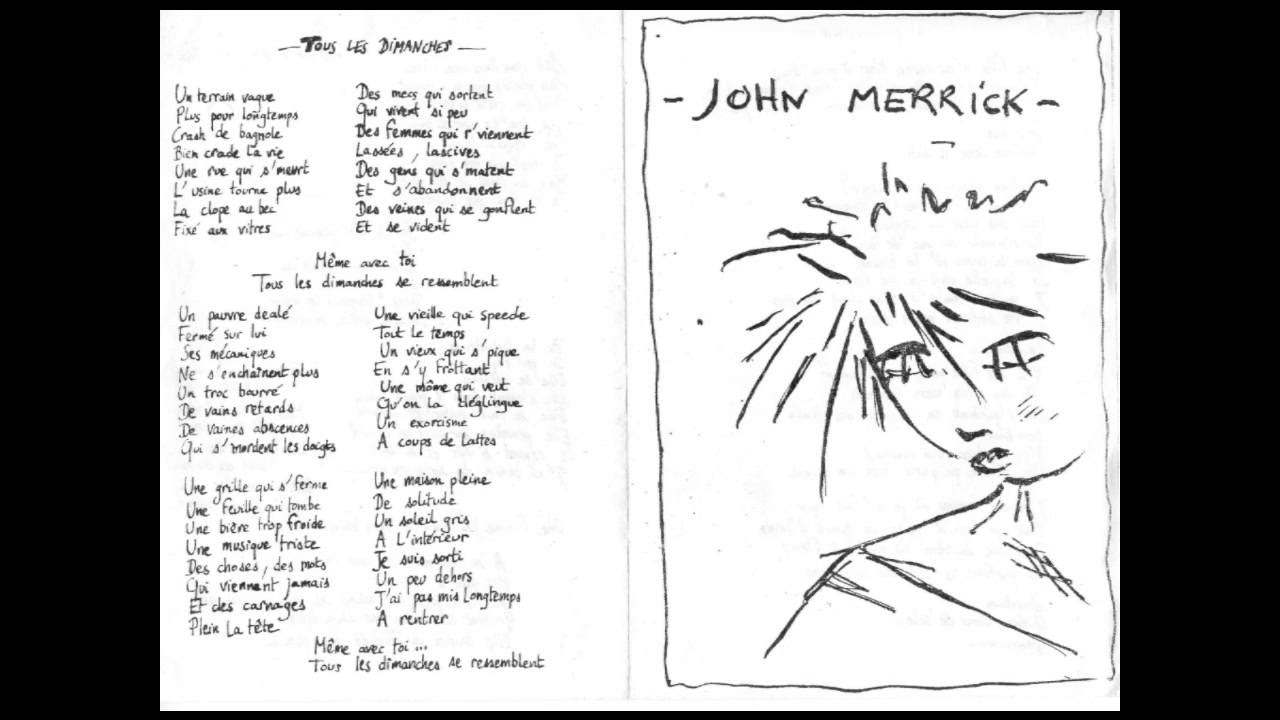 — TOUS LES DIMANCHES —
Un terrain vague
Plus pour longtemps
Crash de bagnole
Bien crade la vie
Une rue qui s'meurt
L'usine tourne plus
La clope au bec
Fixé aux vitres
Des mecs qui sortent
Qui vivent si peu
Des femmes qui r'viennent
Lassées, lascives
Des gens qui s'matent
Et s'abandonnent
Des veines qui se gonflent
Et se vident
Même avec toi
Tous les dimanches se ressemblent
Un pauvre dealé
Fermé sur lui
Ses mécaniques
Ne s'enchaînent plus
Un troc bourré
De vains retards
De vaines abscences
Qui s'mordent les doigts
Une vieille qui speede
Tout le temps
Un vieux qui s'pique
En s'y frottant
Une môme qui veut
Qu'on la déglingue
Un exorcisme
A coups de lattes
Une grille qui s'ferme
Une feuille qui tombe
Une bière trop froide
Une musique triste
Des choses, des mots
Qui viennent jamais
Et des carnages
Plein la tête
Une maison pleine
De solitude
Un soleil gris
A l'intérieur
Je suis sorti
Un peu dehors
J'ai pas mis longtemps
A rentrer
Même avec toi ...
Tous les dimanches se ressemblent
- JOHN MERRICK -